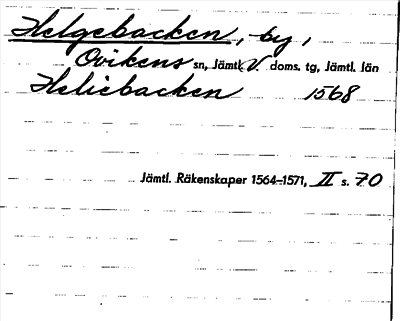 Helgebacken, by,
Ovikens sn, Jämtl. V. doms. tg, Jämtl. län
Heliebacken 1568
Jämtl. Räkenskaper 1564-1571, II s. 70